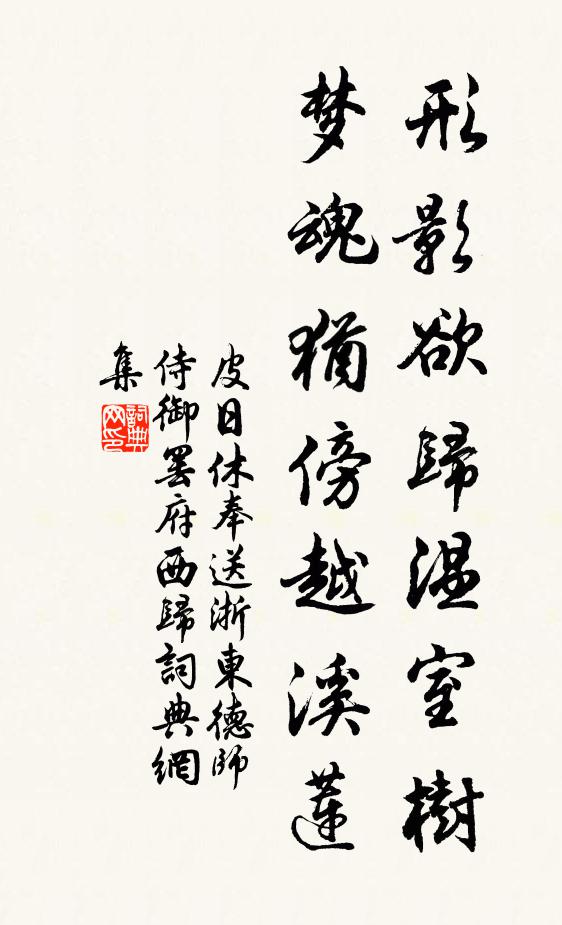 形影欲歸温室樹
梦魂猶傍越溪蓮
皮日休奉送浙東德師
侍御罢府西歸詞典網
集
詞典
网印